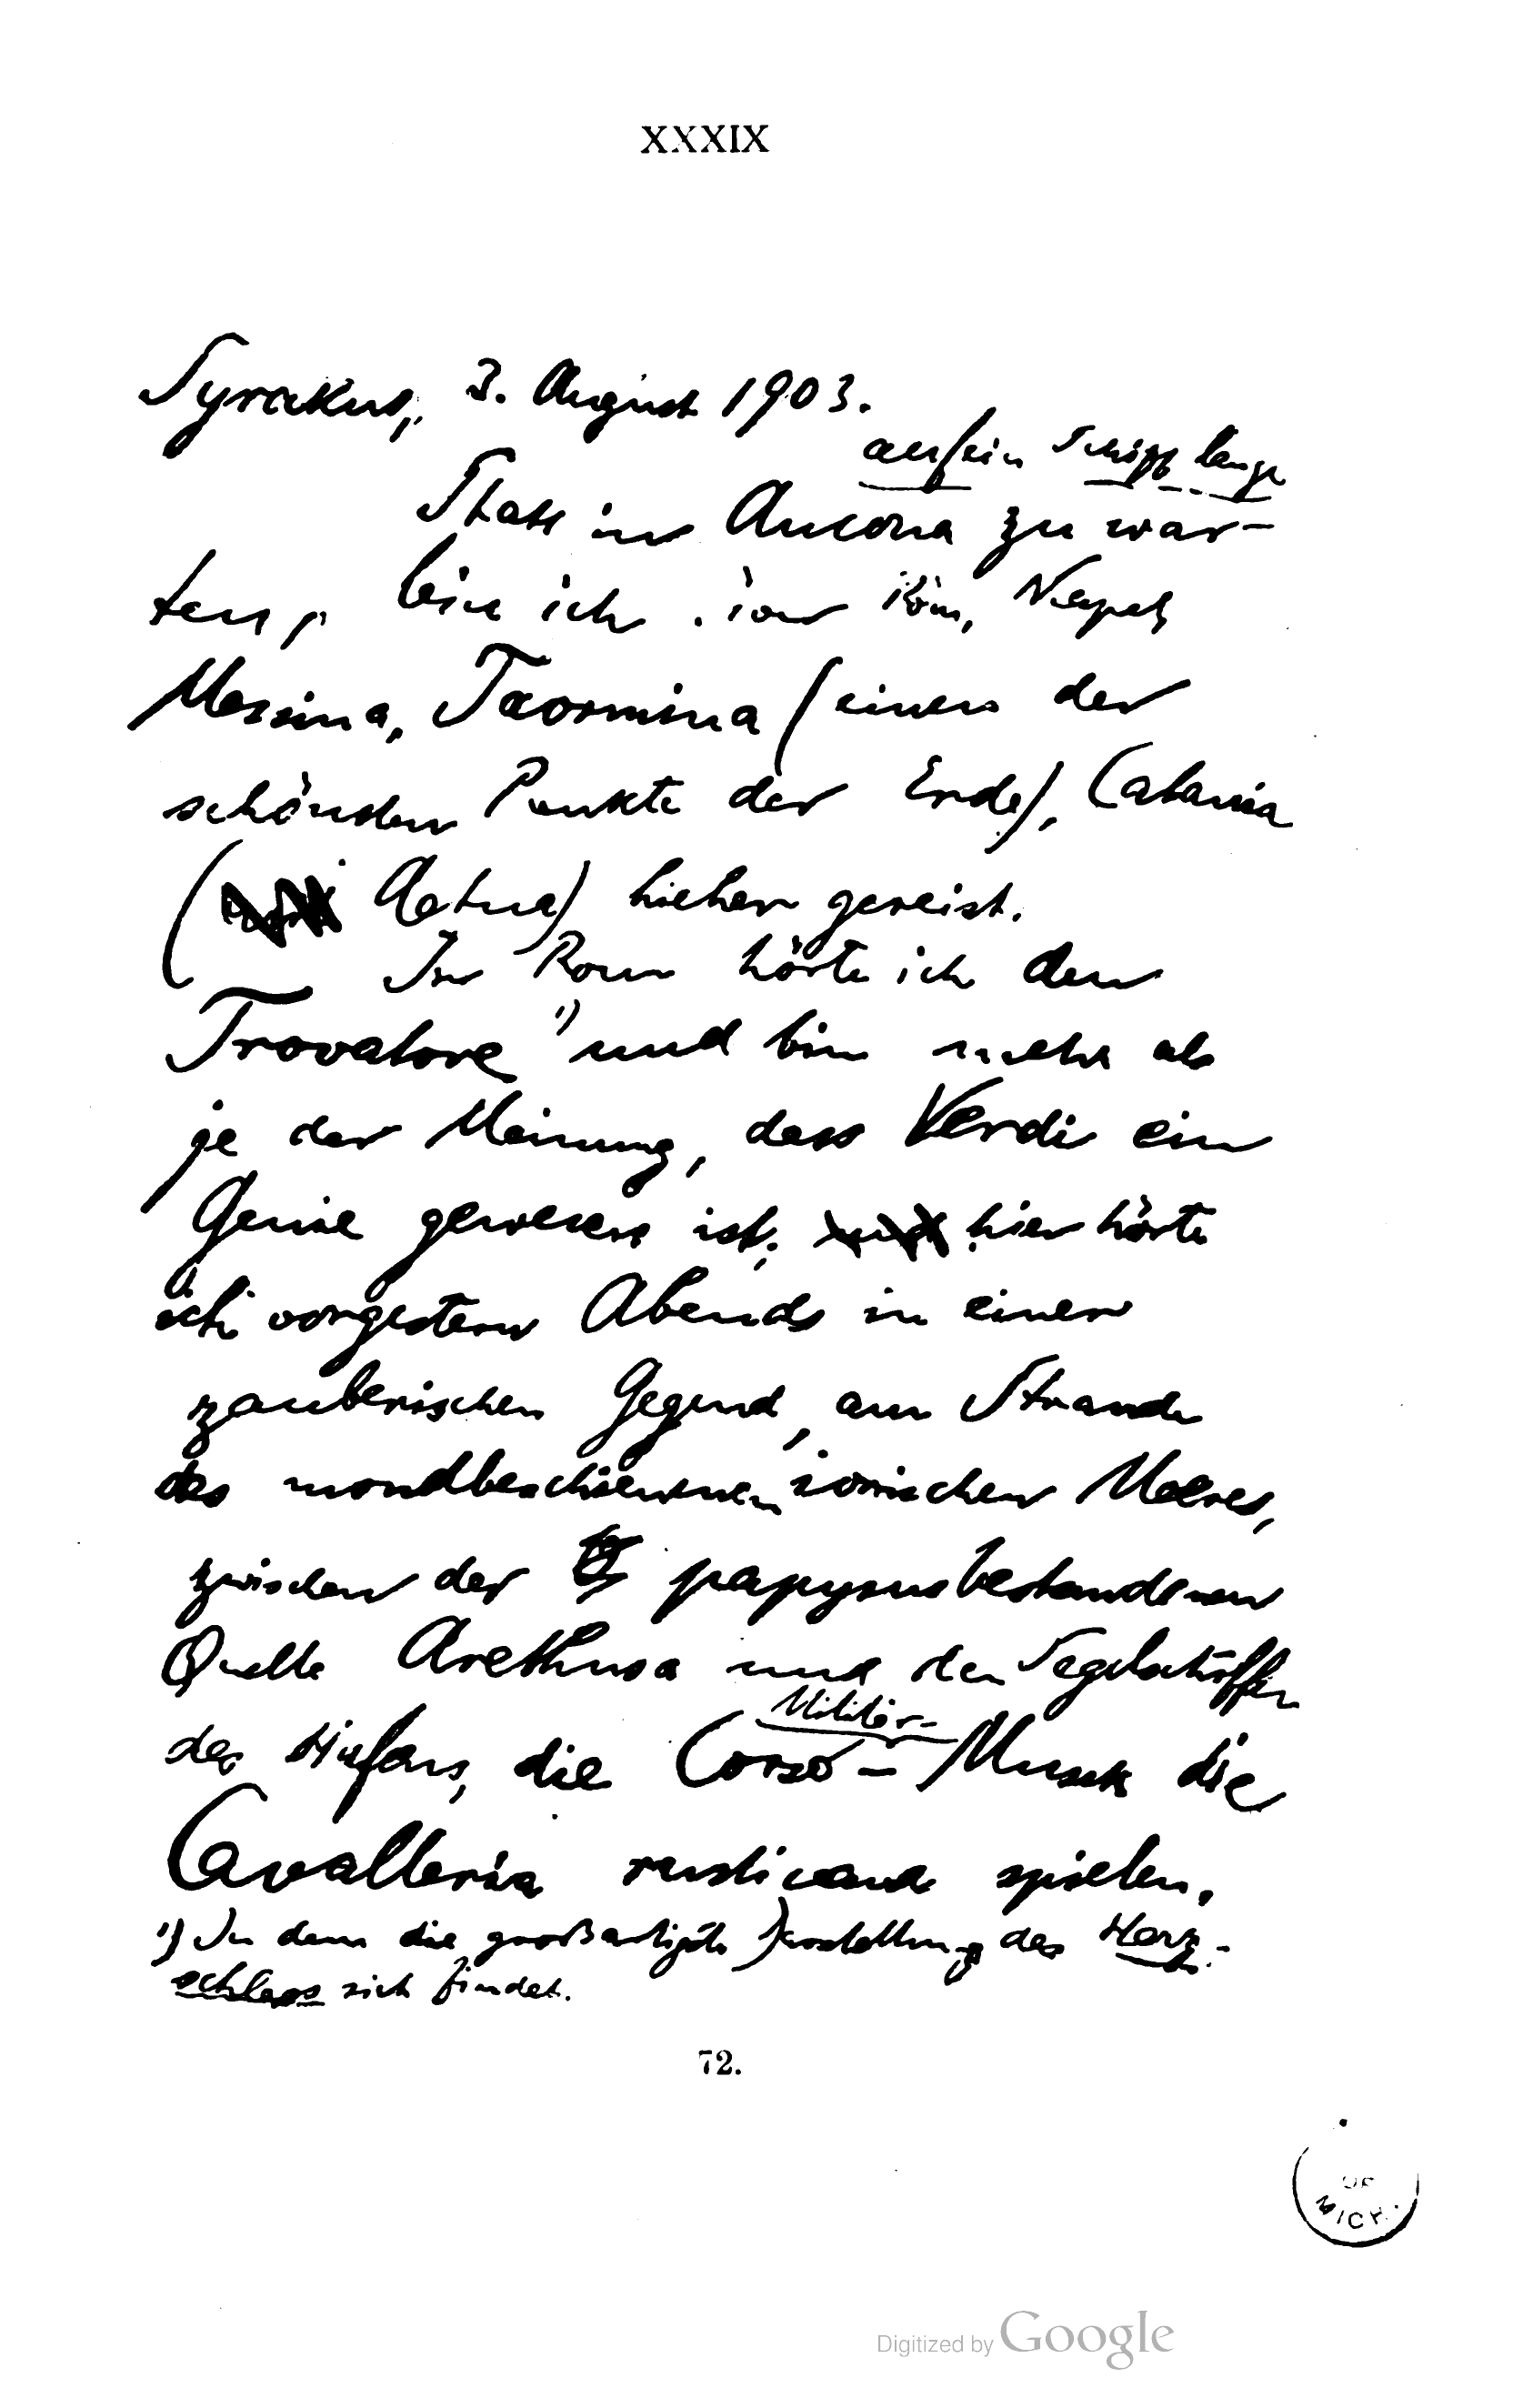 XXXIX
Syrakus, 3. August 1903.
auf ein Schiff lange
Statt in Ancona zu war-
ten, bin ich in Rom, Neapel
Messina, Taormina (einen der
schönsten Punkte der Erde), Catania
( Aetna) hieher gereist.
In Rom hörte ich den
Trovatore 1) und bin mehr als
je der Meinung, dass Verdi ein
Genie gewesen ist; hier hörte
ich vorgestern Abends in einer
zauberischen Gegend, am Strande
des mondbeschienenen ionischen Meeres,
zwischen der papyrusbestandenen
Quelle Arethusa und den Segelschiffen
des Hafens, die Corso-Musik die
Militär-
Cavalleria rusticana spielen.
1) In dem die großartigste Darstellung des Herz-
schlags sich findet.
72.
OF
MICH.
Digitized by Google